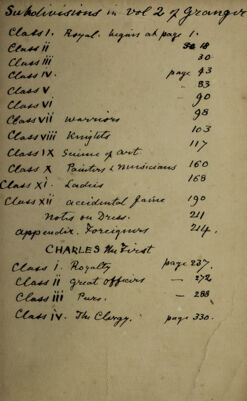 Subdivisions in vol 2 of Granger
Class I. Royal. begins at page 1.
Class ii 18
Class iii 30
Class iv. page 43
Class V " 83
Class VI 90
Class vii Warriors 98
Class viii Knights 103
Class IX Science & art 117
Class X Painters & Musicians 160
Class XI. Ladies 168
Class XII accidental fame 190
Notes on Dress. 211
appendix. Foreigners 214.
CHARLES the First
Class i. Royalty page 237.
Class ii Great officers — 272
Class iii Peers. — 288
Class iv. The Clergy. page 330.